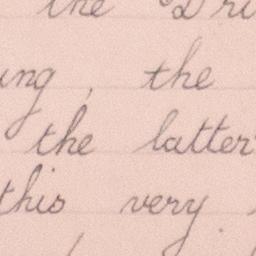 the Dri
ing, the
the latter
this very